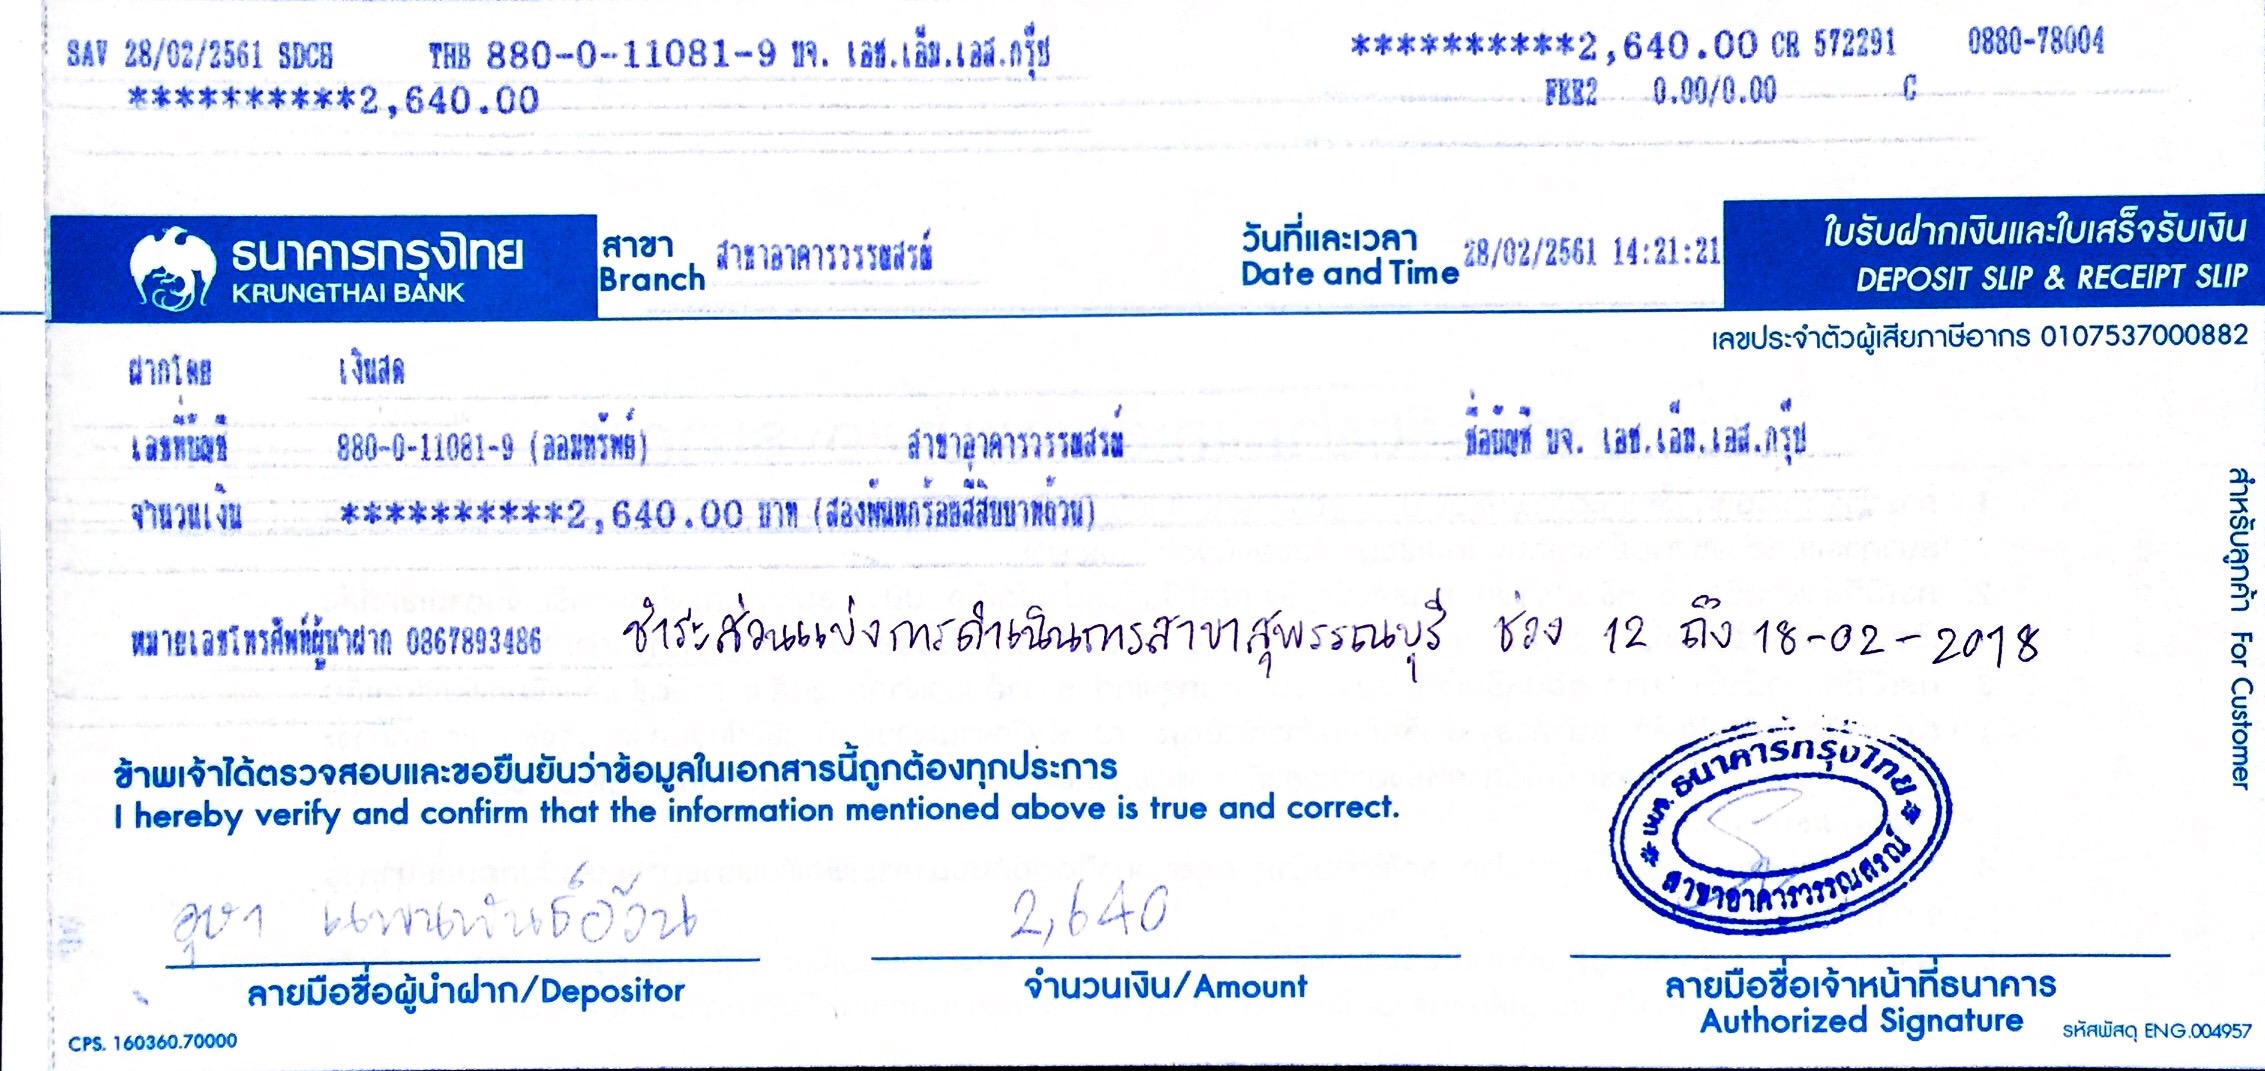 SAV 28/02/2561 SDCH THB 880-0-11081-9 บจ. เอช.เอ็ม.เอส.กรุ๊ป **********2,640.00 CR 572291 0880-78004
**********2,640.00 FEE2 0.00/0.00 C
ธนาคารกรุงไทย
KRUNGTHAI BANK
สาขา
Branch
สาขาอาคารวรรณสรณ์
วันที่และเวลา
Date and Time
28/02/2561 14:21:21
ใบรับฝากเงินและใบเสร็จรับเงิน
DEPOSIT SLIP & RECEIPT SLIP
เลขประจำตัวผู้เสียภาษีอากร 0107537000882
ฝากโดย เงินสด
เลขที่บัญชี 880-0-11081-9 (ออมทรัพย์) สาขาอาคารวรรณสรณ์ ชื่อบัญชี บจ. เอช.เอ็ม.เอส.กรุ๊ป
จำนวนเงิน **********2,640.00 บาท (สองพันหกร้อยสี่สิบบาทถ้วน)
หมายเลขโทรศัพท์ผู้นำฝาก 0867893486 ชำระส่วนแบ่งการดำเนินการสาขาสุพรรณบุรี ช่วง 12 ถึง 18-02-2018
สำหรับลูกค้า For Customer
ข้าพเจ้าได้ตรวจสอบและขอยืนยันว่าข้อมูลในเอกสารนี้ถูกต้องทุกประการ
I hereby verify and confirm that the information mentioned above is true and correct.
บมจ.ธนาคารกรุงไทย
สาขาอาคารวรรณสรณ์
อุษา แพนพันธ์อ้วน 2,640
ลายมือชื่อผู้นำฝาก/Depositor จำนวนเงิน/Amount ลายมือชื่อเจ้าหน้าที่ธนาคาร
Authorized Signature
CPS. 160360.70000 รหัสพัสดุ ENG.004957